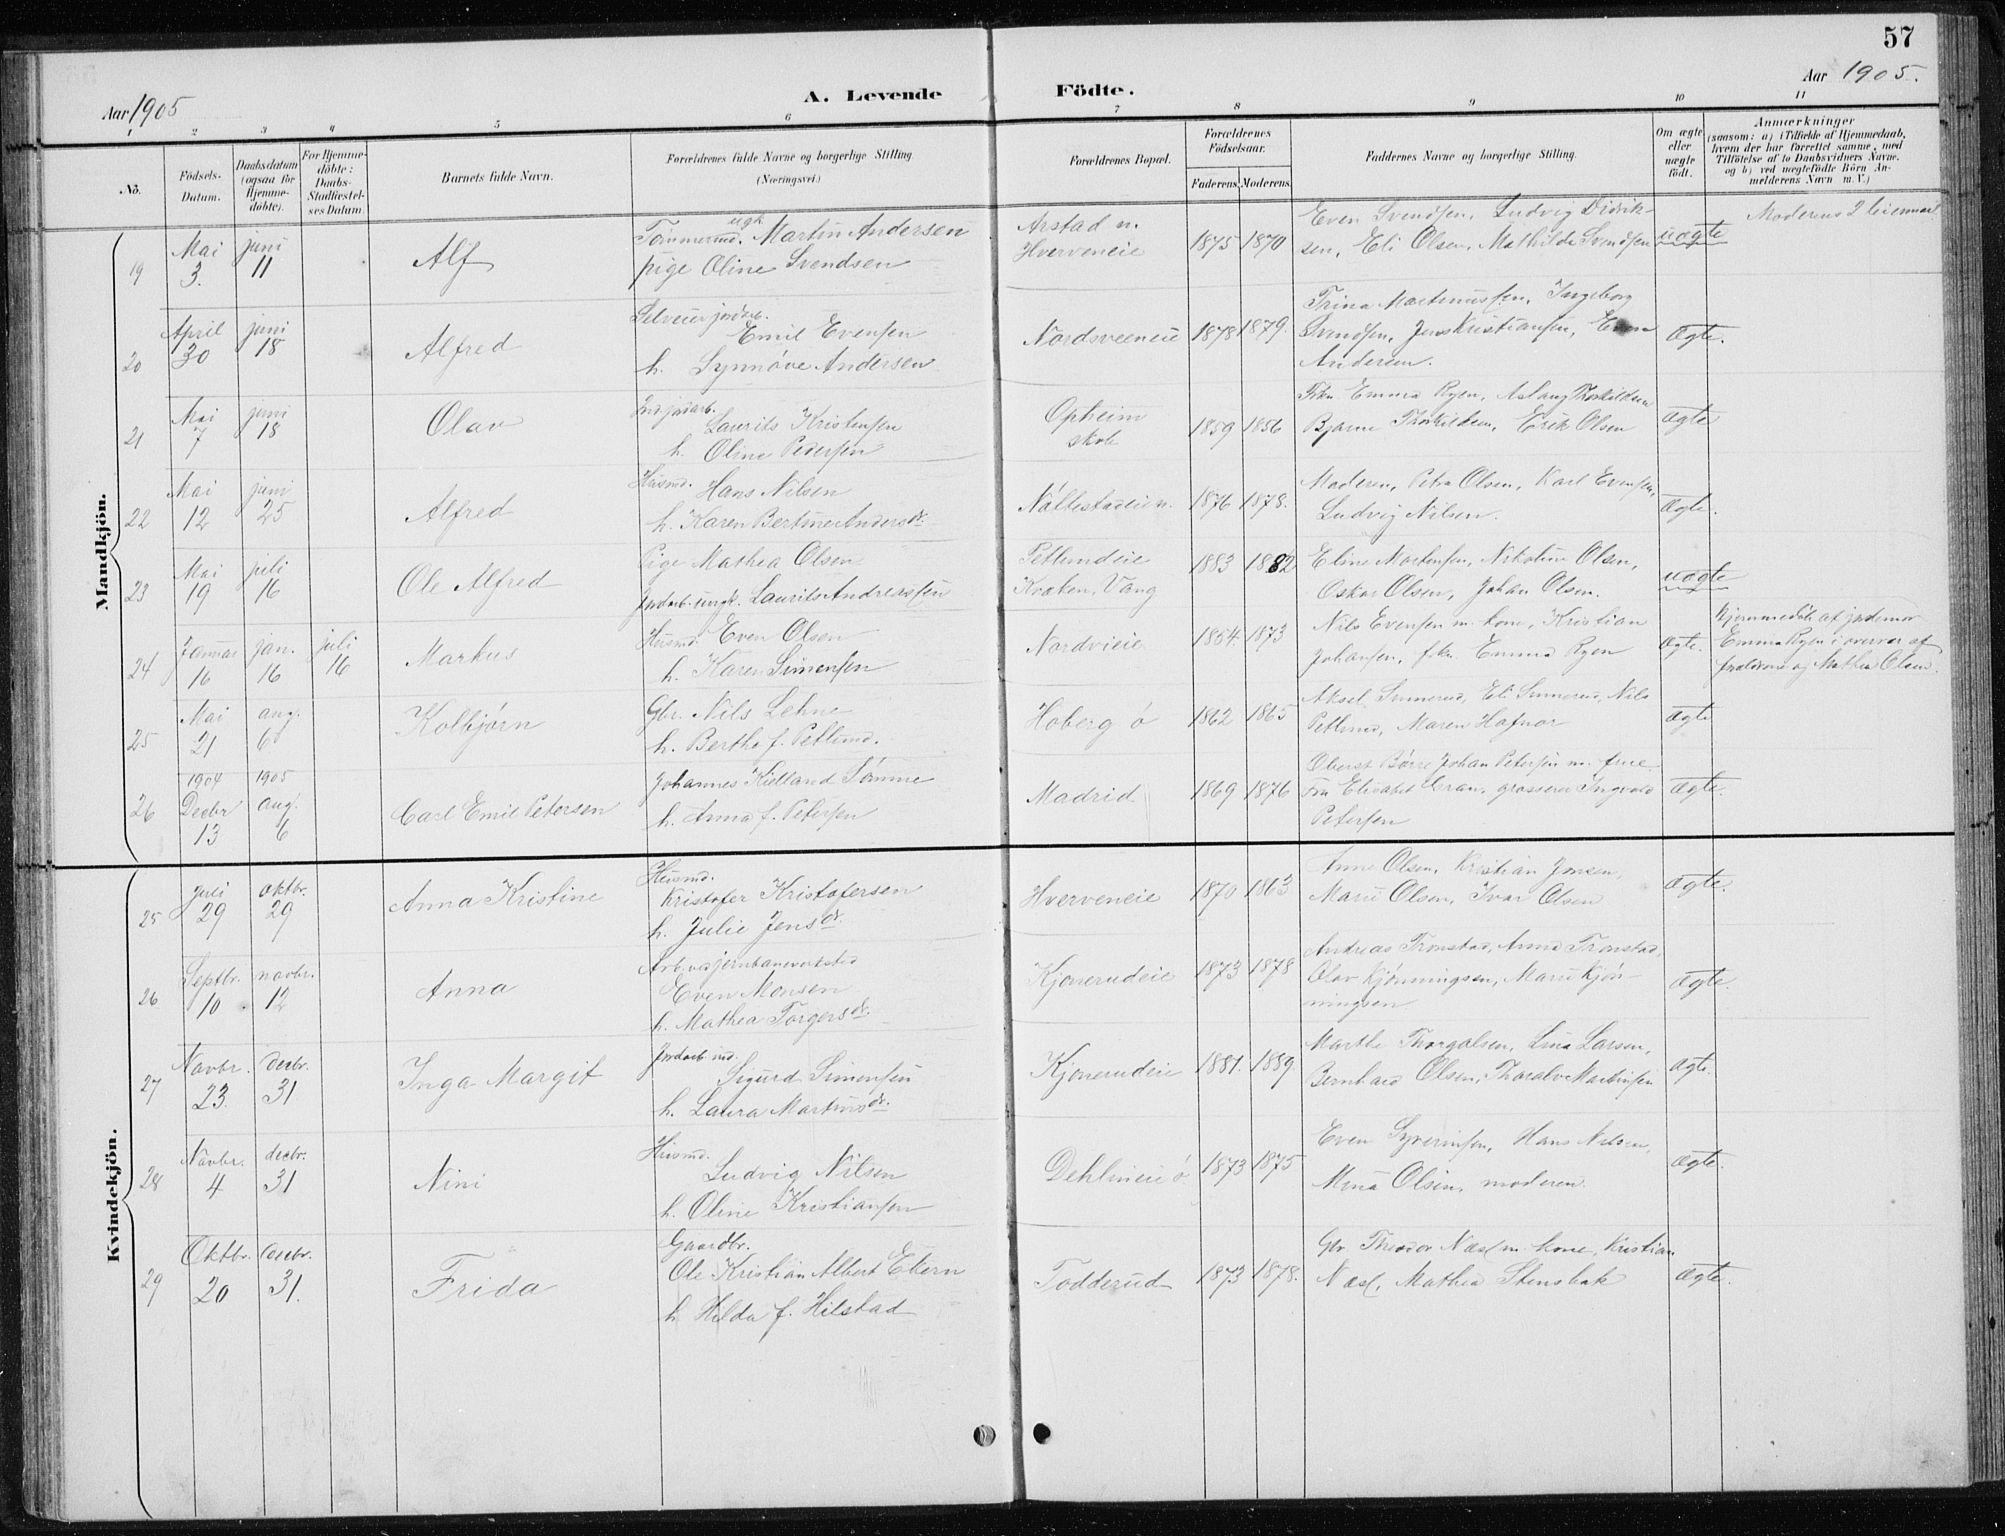 57
Aar 1905
A. Levende Födte.
Aar 1905.
1 2 3 4 5 6 7 8 9 10 11
No.
Födsels-Datum.
Daabsdatum (ogsaa for Hjemme-döbte).
For Hjemme-döbte: Daabs-Stadfæstel-ses Datum.
Barnets fulde Navn.
Forældrenes fulde Navne og borgerlige Stilling
(Næringsvei.)
Forældrenes Bopæl.
Forældrenes Födselsaar.
Faderens. Moderens.
Faddernes Navne og borgerlige Stilling.
Om ægte eller uægte födt.
Anmærkninger
(saasom: a) i Tilfælde af Hjemmedaab, hvem der har forrettet samme, med Tilföielse af to Daabsvidners Navne, og b) ved uægtefödte Börn An-melderens Navn m. V.)
Mandkjön.
19 Mai 3. juni 11 Alf
Tömmermd. ugk. Martin Andersen
pige Oline Svendsen
Arstad n.
Hverveneie
1875 1870
Even Svendsen, Ludvig Didrik-
sen, Eli Olsen, Mathilde Svendsen
uægte
Moderens 2 leiermaal
20 April 30 juni 18 Alfred
Selveier jordarb.
Emil Evensen
h. Synnöve Andersen
Nordsveeneie
1878 1879.
Trina Martinussen, Ingeborg
Svendsen, Jens Kristiansen, Even
Andersen.
ægte.
21 Mai 7 juni 18 Olav
Ind. jordarb.
Laurits Kristensen
h. Oline Pedersen
Opheim
skole
1859 1856
Frkn Emma Ryen, Aslaug Thorkildsen
Bjarne Thorkildsen, Erik Olsen
ægte
22 Mai 12 juni 25 Alfred
Husmd. Hans Nilsen
h. Karen Bertine Andersdr.
Nöttestadeie n.
1876 1878.
Moderen, Petra Olsen, Karl Evensen,
Ludvig Nilsen.
ægte.
23 Mai 19 juli 16 Ole Alfred
Pige Mathea Olsen
Jordarb. ungk. Laurits Andreassen
Petlundeie
Kraken, Vang
1883 1882
Eline Mortensen, Nikoline Olsen,
Oskar Olsen, Johan Olsen.
uægte
24 Januar 16 jan. 16 juli 16 Markus
Husmd. Even Olsen
h. Karen Simensen
Nordvieie
1854. 1873
Nils Evensen m. kone, Kristian
Johansen, frkn. Emma Ryen
ægte.
Hjemmedöbt af jordemor
Emma Ryen i overvær af
forældrene og Mathea Olsen.
25 Mai 21 aug. 6 Kolbjörn
Gbr. Nils Lehne
h. Berthe f. Petlund.
Hoberg ö
1862 1865
Aksel Sunnerud, Eli Sunnerud, Nils
Petlund, Maren Hafnor
ægte
26 1904 Decbr 13 1905 aug. 6 Carl Emil Petersen
Johannes Kielland Sömme
h. Anna f. Petersen
Madrid
1869 1876
Oberst Börre, Johan Petersen m. frue
Fru Elisabet Gran, grosserer Ingvald
Petersen
ægte.
Kvindekjön.
25 juli 29 oktbr. 29 Anna Kristine
Husmd.
Kristofer Kristofersen
h. Julie Jensdr.
Hverveneie
1870 1863
Anne Olsen, Kristian Jonsen,
Marie Olsen, Ivar Olsen
ægte.
26 Septbr. 10 novbr. 12 Anna
Arb. ved jernbaneverksted
Even Monsen
h. Mathea Torgersdr.
Kjonerudeie
1873 1878
Andreas Tronstad, Anna Tronstad,
Olav Kjönningsen, Marie Kjön-
ningsen
ægte.
27 Novbr. 23. decbr. 31 Inga Margit
Jordarb. ind.
Sigurd Simensen
h. Laura Martinsdr.
Kjonerudeie
1881. 1889.
Marthe Thorgalsen, Lina Larsen,
Bernhard Olsen, Thoralv Martinsen
ægte.
28 Novbr. 4 decbr. 31 Nini
Husmd.
Ludvig Nilsen
h. Oline Kristiansen
Dehlineie ö
1873 1875
Even Syverinsen, Hans Nilsen,
Mina Olsen, moderen.
ægte.
29 Oktbr. 20 decbr. 31. Frida
Gaardbr.
Ole Kristian Albert Ekern
h. Hilda f. Hilstad
Todderud
1873 1878.
Gbr. Theodor Næss m. kone, Kristian
Næss, Mathea Stensbak
ægte.